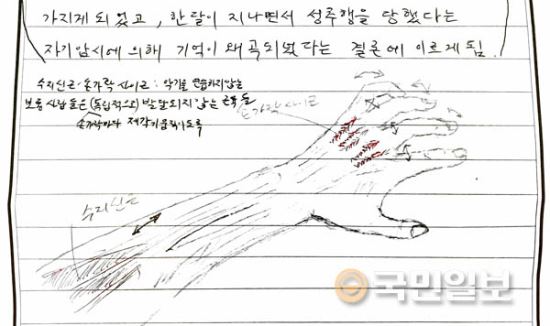 가지게 되었고, 한달이 지나면서 성추행을 당했다는
자기암시에 의해 기억이 왜곡되었다는 결론에 이르게 됨.
수지신근·손가락 사이근: 악기를 연습하지않는
보통 사람들은 (독립적으로) 발달되지 않는 근육들
손가락마다 제각기움직이도록
손가락사이근
수지신근
국민일보